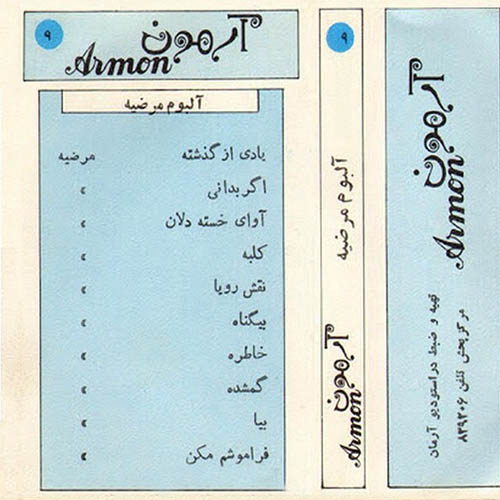 ۹
آرمون
Armon
آلبوم مرضیه
یادی از گذشته مرضیه
اگر بدانی »
آوای خسته دلان »
کلبه »
نقش رویا »
بیگناه »
خاطره »
گمشده »
بیا »
فراموشم مکن »
۹
آلبوم مرضیه
آرمون
Armon
آرمون
Armon
تهیه و ضبط در استودیو آرمان
مرکز پخش تلفن ۸۳۹۲۰۶